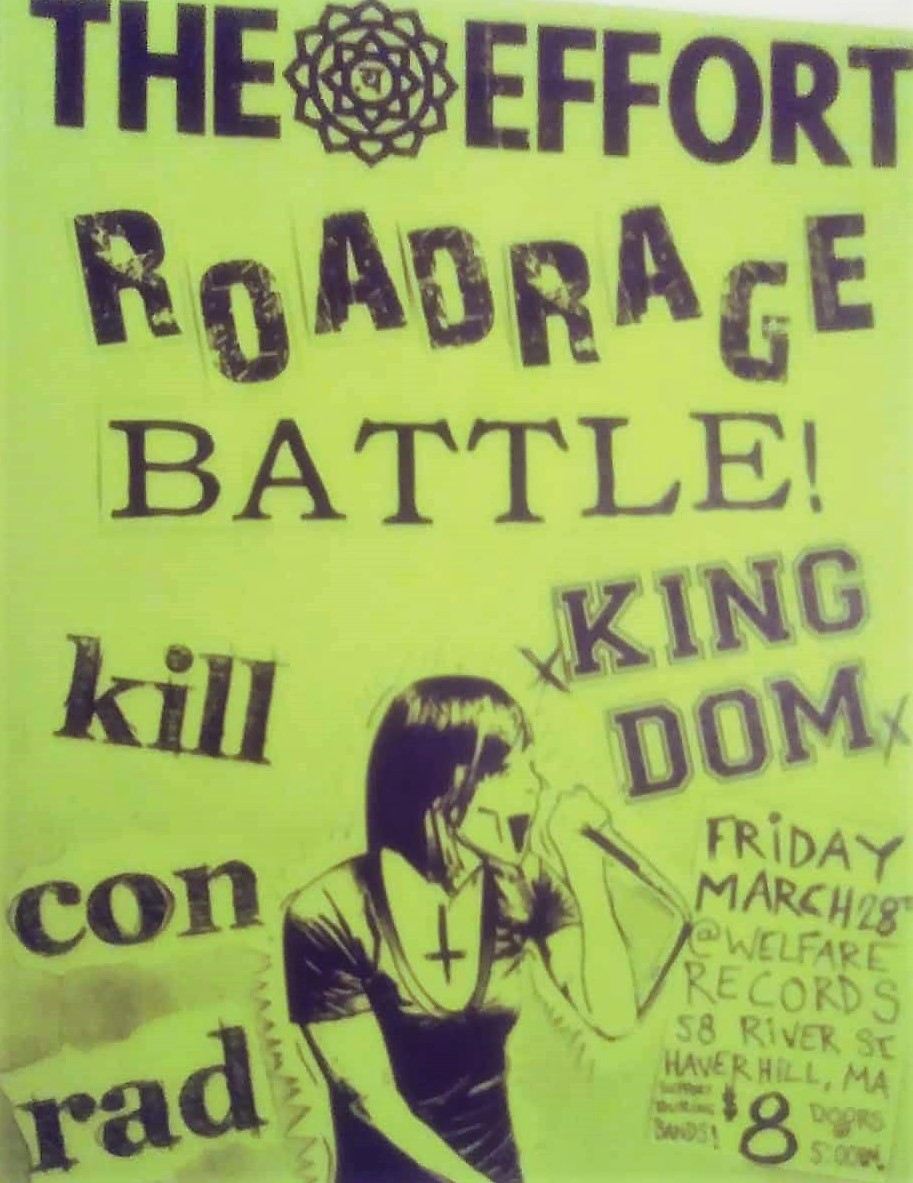 THE EFFORT
ROADRAGE
BATTLE!
xKING
DOMx
kill
con
rad
FRiDAY
MARCH 28TH
@ WELFARE
RECORDS
58 RiVER ST
HAVERHILL, MA
SUPPORT
TOURING
BANDS!
$8
DOORS
5:00PM.